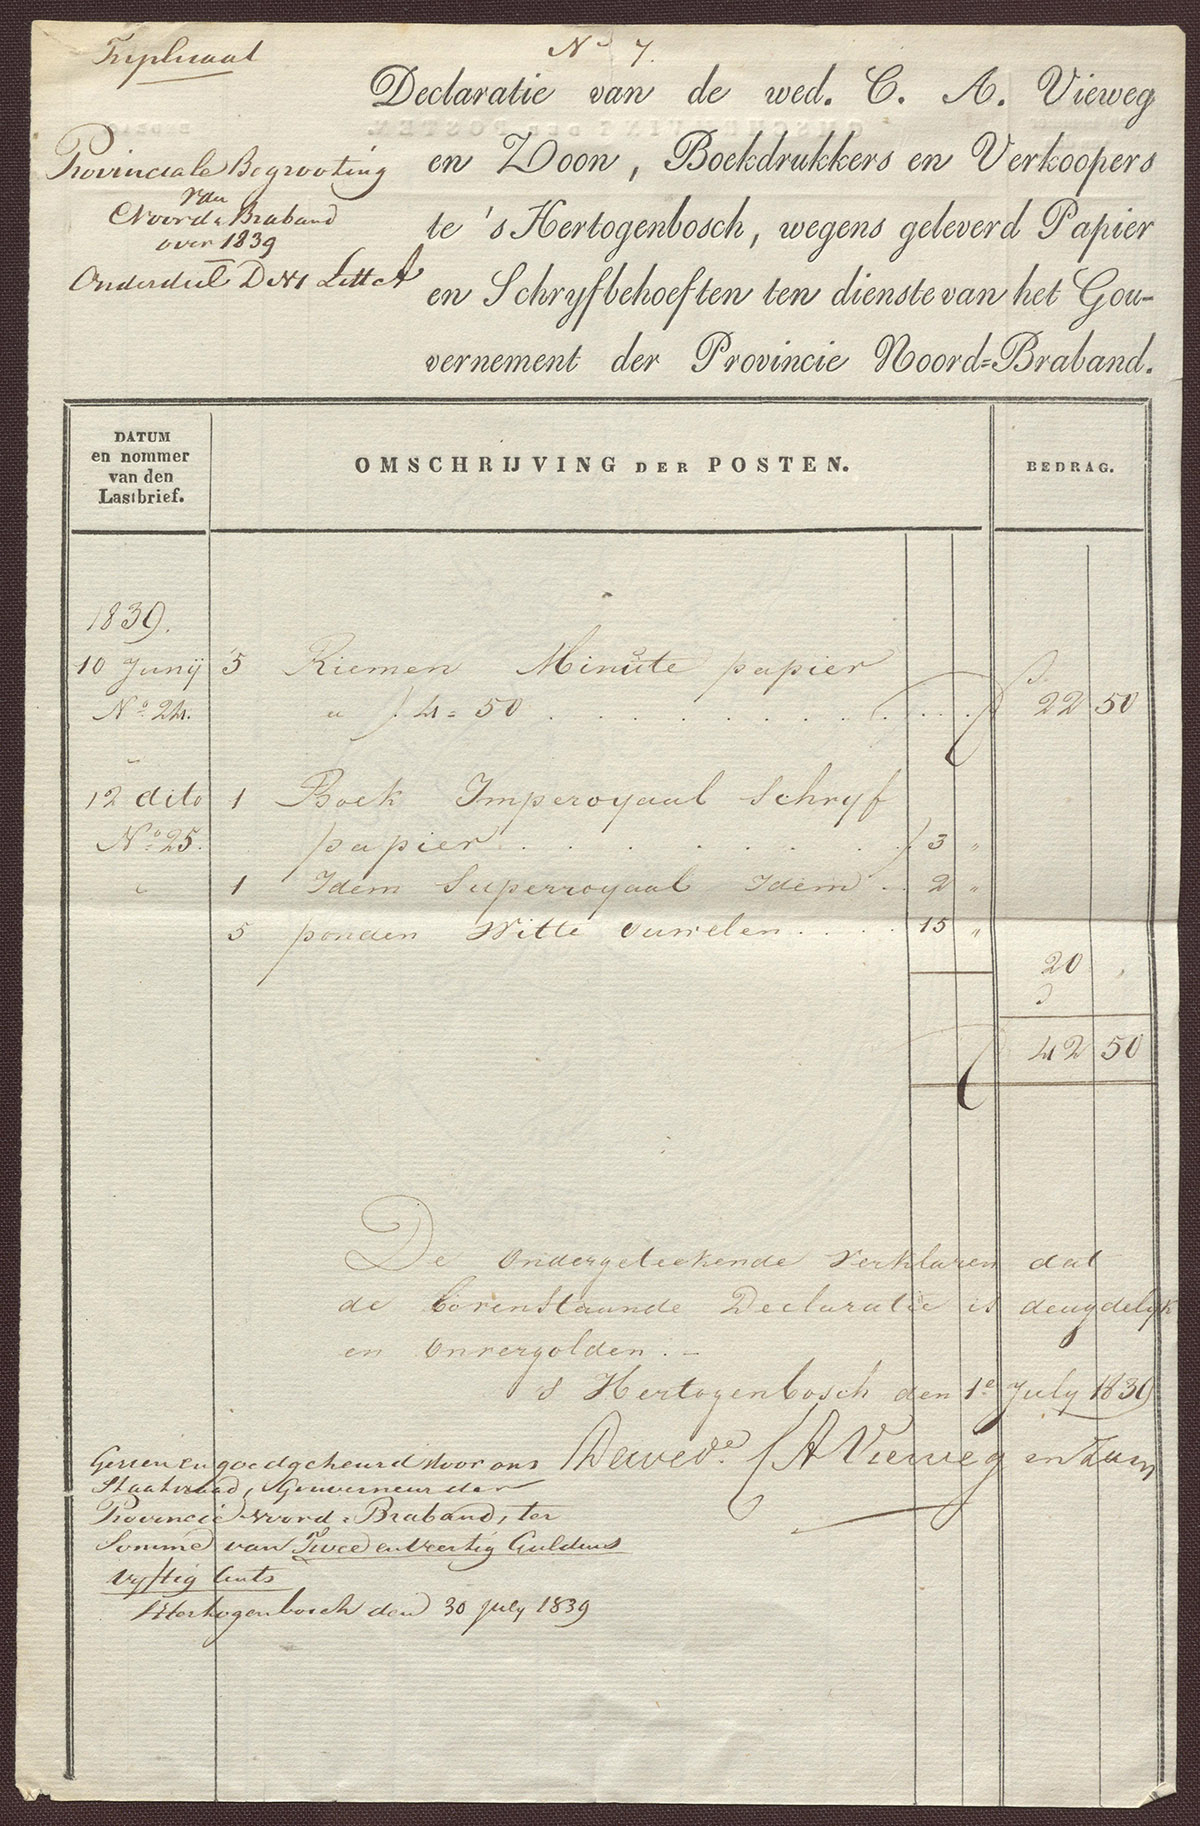 Triplicaat
N° 7.
Declaratie van de wed. C. A. Vieweg
en Zoon, Boekdrukkers en Verkoopers
te 's Hertogenbosch, wegens geleverd Papier
en Schryfbehoeften ten dienste van het Gou-
vernement der Provincie Noord=Braband.
Provinciale Begrooting
van
Noord=Braband
over 1839
Onderdeel D N1 Litt A
DATUM
en nommer
van den
Lastbrief.
OMSCHRIJVING DER POSTEN.
BEDRAG.
1839.
10 Junij 5 Riemen Minute papier
N° 24. a f 4=50 . . . . . . . . . . 22 50
12 dito 1 Boek Imperoyaal Schryf
N° 25. papier . . . . . . . f 3 "
1 Idem Superroyaal Idem . . 2 "
5 ponden Witte ouwelen . . . . 15 "
20
42 50
De Ondergeteekende Verklaren dat
de bovenstaande Declaratie is deugdelyk
en Onvergolden. -
's Hertogenbosch den 1e July 1839
Dewede. C A Vieweg en Zoon
Gezien en goedgekeurd door ons
Staatsraad, Gouverneur der
Provincie Noord=Braband, ter
Somme van Twee en Veertig Guldens
vyftig Cents
's Hertogenbosch den 30 July 1839